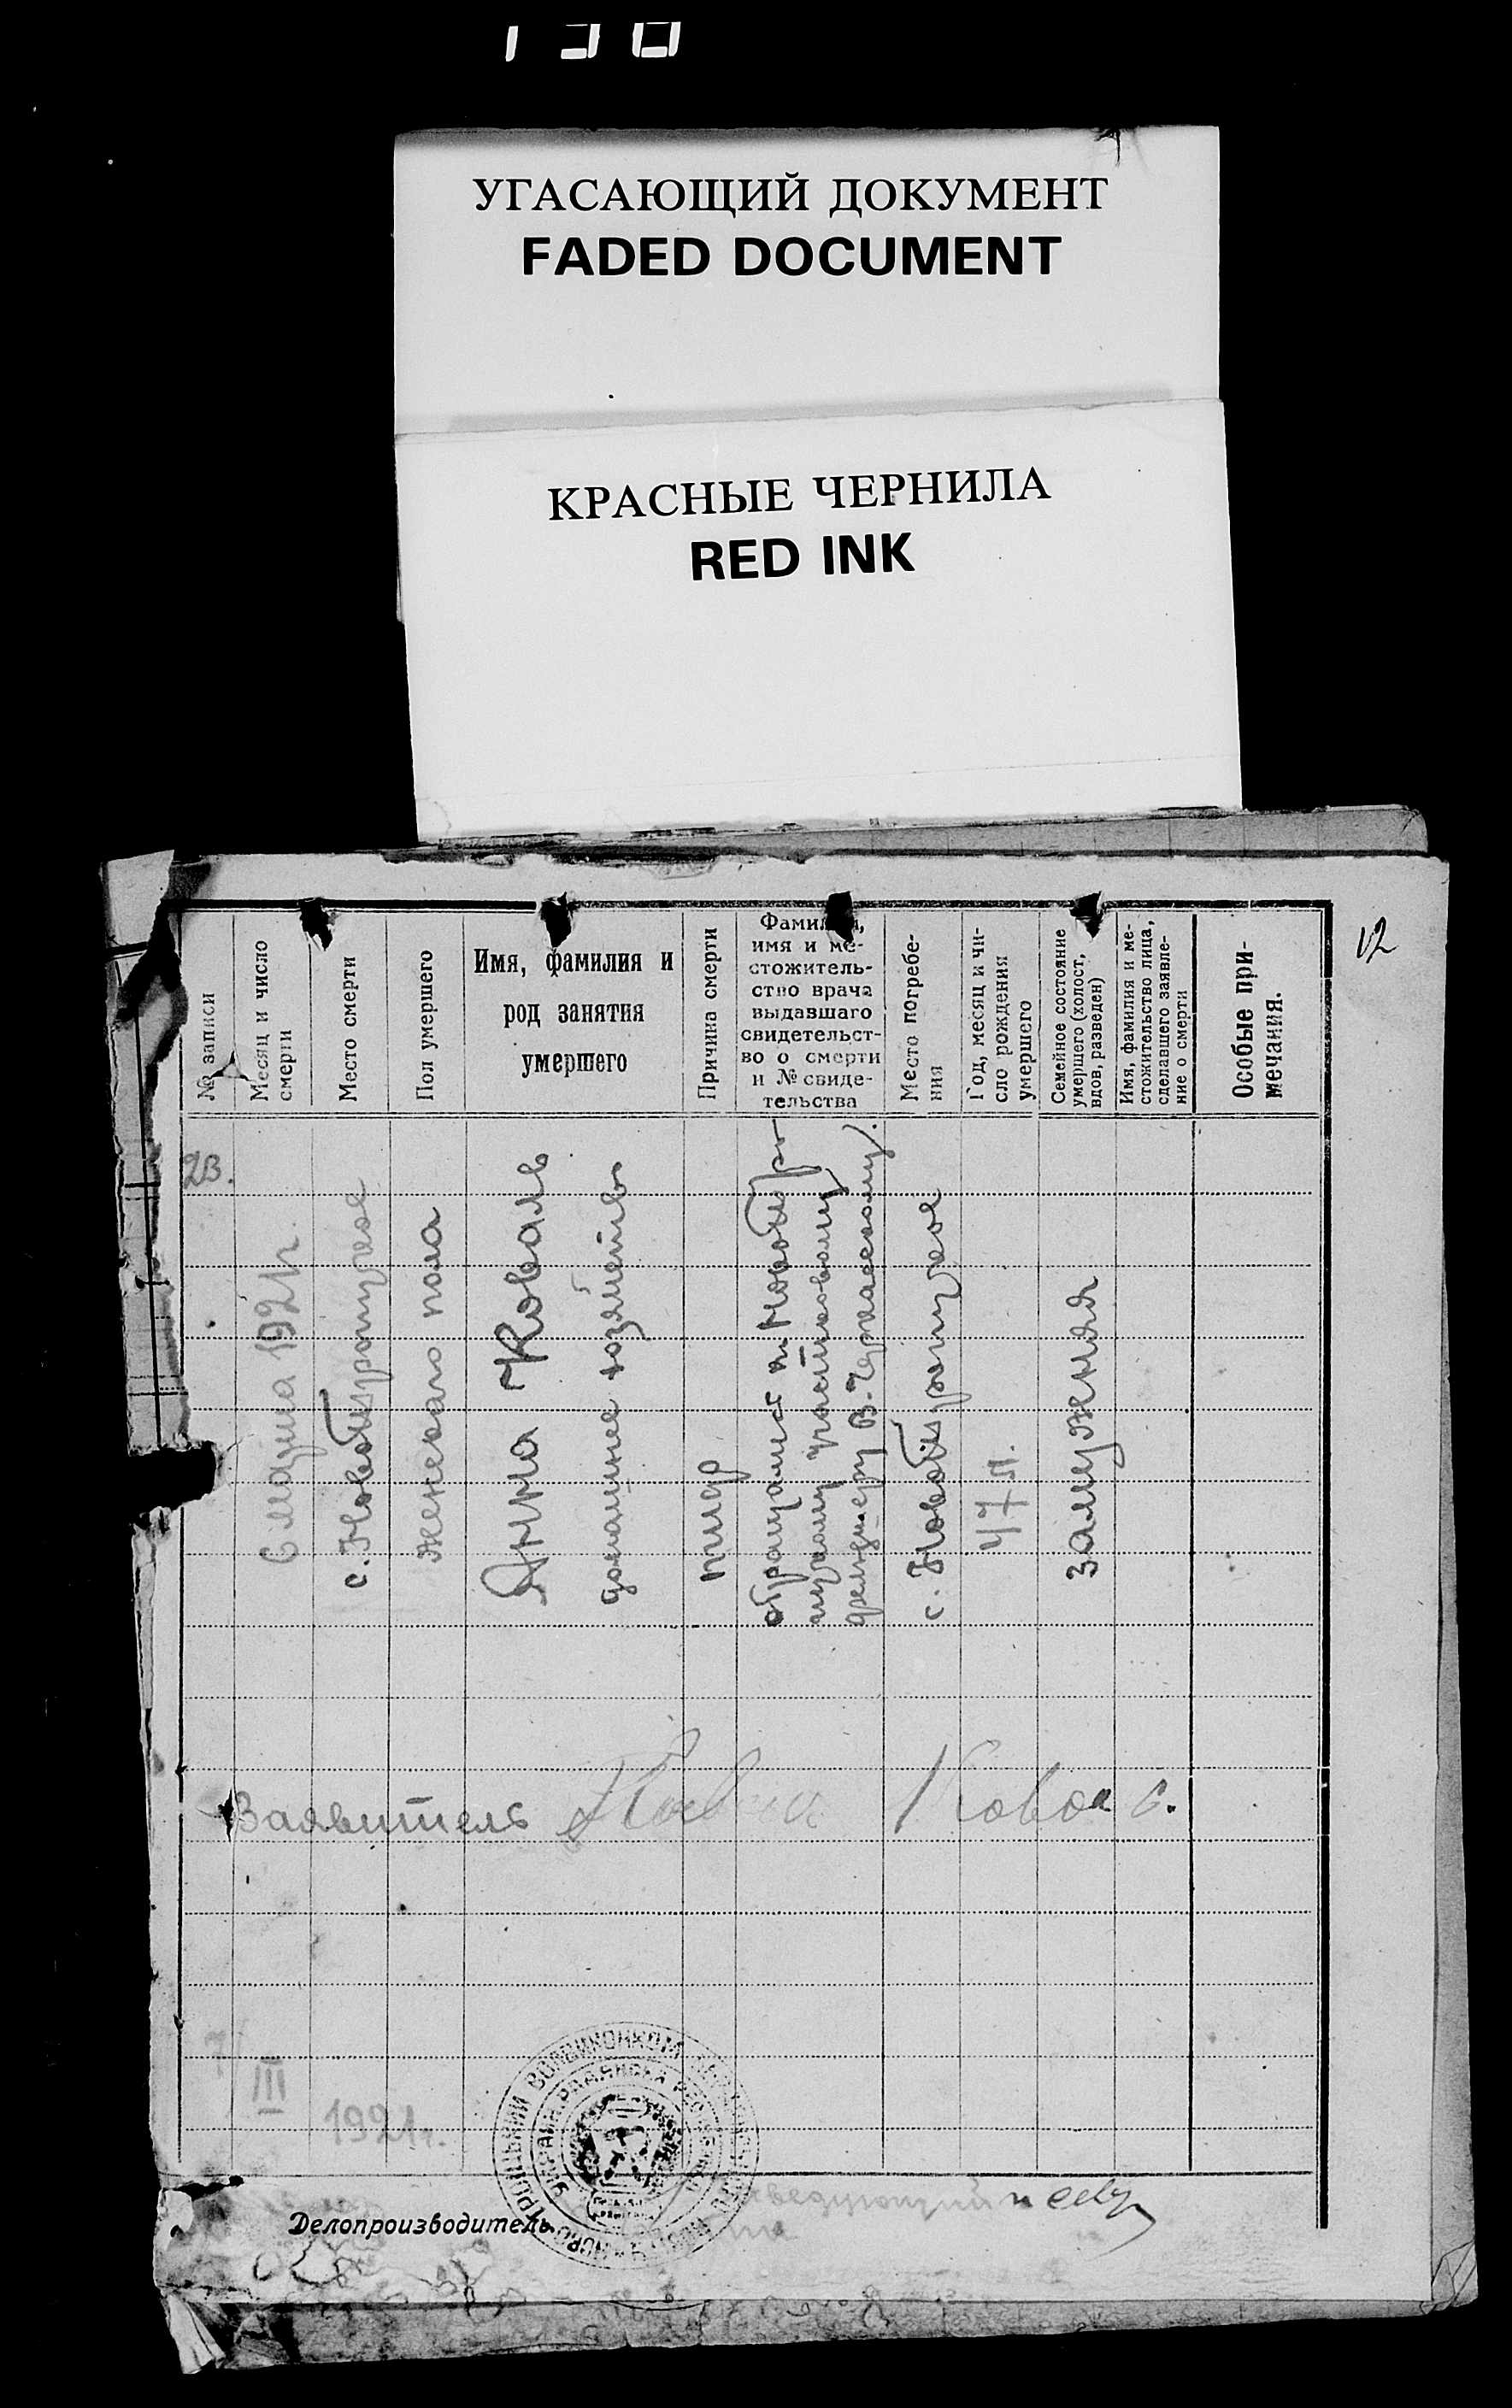 УГАСАЮЩИЙ ДОКУМЕНТ
FADED DOCUMENT
КРАСНЫЕ ЧЕРНИЛА
RED INK
12
№ записи
Месяц и число
смерти
Место смерти
Пол умершего
Имя, фамилия и
род занятия
умершего
Причина смерти
Фамилия,
имя и ме-
стожитель-
ство врача
выдавшаго
свидетельст-
во о смерти
и № свиде-
тельства
Место погребе-
ния
Год, месяц и чи-
сло рождения
умершего
Семейное состояние
умершего (холост,
вдов, разведен)
Имя, фамилия и ме-
стожительство лица,
сделавшего заявле-
ние о смерти
Особые при-
мечания.
23.
6 марта 1921г.
с. Новотроицкое
женского пола
Анна Коваль
домашнее хозяйство
тиф
обращались к Новотро
ицкому участковому
В. Черкасскому.
с. Новотроицкое
47 л.
замужняя
Заявитель Коваль
7
III
1921г.
Делопроизводитель